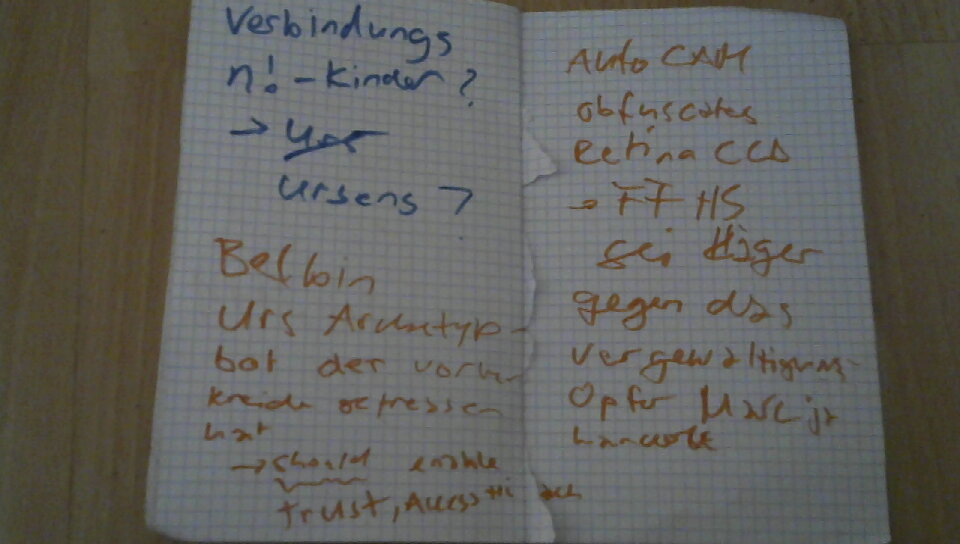 Verbindungs
n! - Kinder?
→ Urs
Ursens ?
Bef bin
Urs Archetyp-
bot der vorher
Kreide gefressen
hat
→ should enable
trust,
Auto CAM
obfuscates
Retina CCD
→ FF HS
sei Kläger
gegen das
Vergewaltigungs-
Opfer